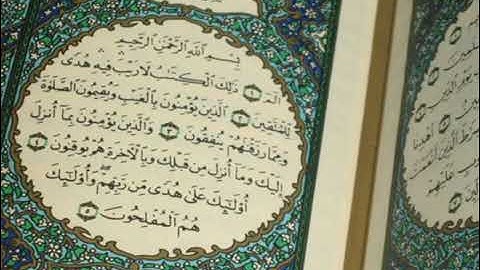 ٱهْدِنَا
بِسْمِ ٱللَّهِ ٱلرَّحْمَٰنِ ٱلرَّحِيمِ
الٓمٓ ١ ذَٰلِكَ ٱلْكِتَٰبُ لَا رَيْبَ فِيهِ هُدًى
لِّلْمُتَّقِينَ ٢ ٱلَّذِينَ يُؤْمِنُونَ بِٱلْغَيْبِ وَيُقِيمُونَ ٱلصَّلَوٰةَ
وَمِمَّا رَزَقْنَٰهُمْ يُنفِقُونَ ٣ وَٱلَّذِينَ يُؤْمِنُونَ بِمَآ أُنزِلَ
إِلَيْكَ وَمَآ أُنزِلَ مِن قَبْلِكَ وَبِٱلْءَاخِرَةِ هُمْ يُوقِنُونَ ٤
أُو۟لَٰٓئِكَ عَلَىٰ هُدًى مِّن رَّبِّهِمْ وَأُو۟لَٰٓئِكَ
هُمُ ٱلْمُفْلِحُونَ ٥